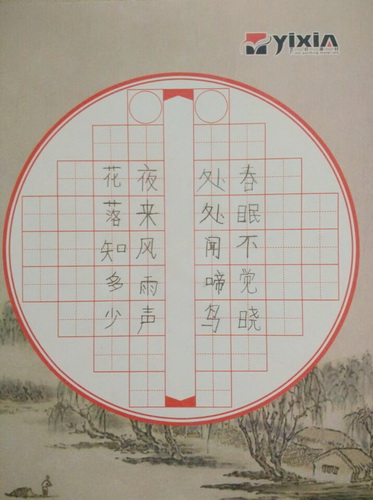 YIXIN
春眠不觉晓
处处闻啼鸟
夜来风雨声
花落知多少